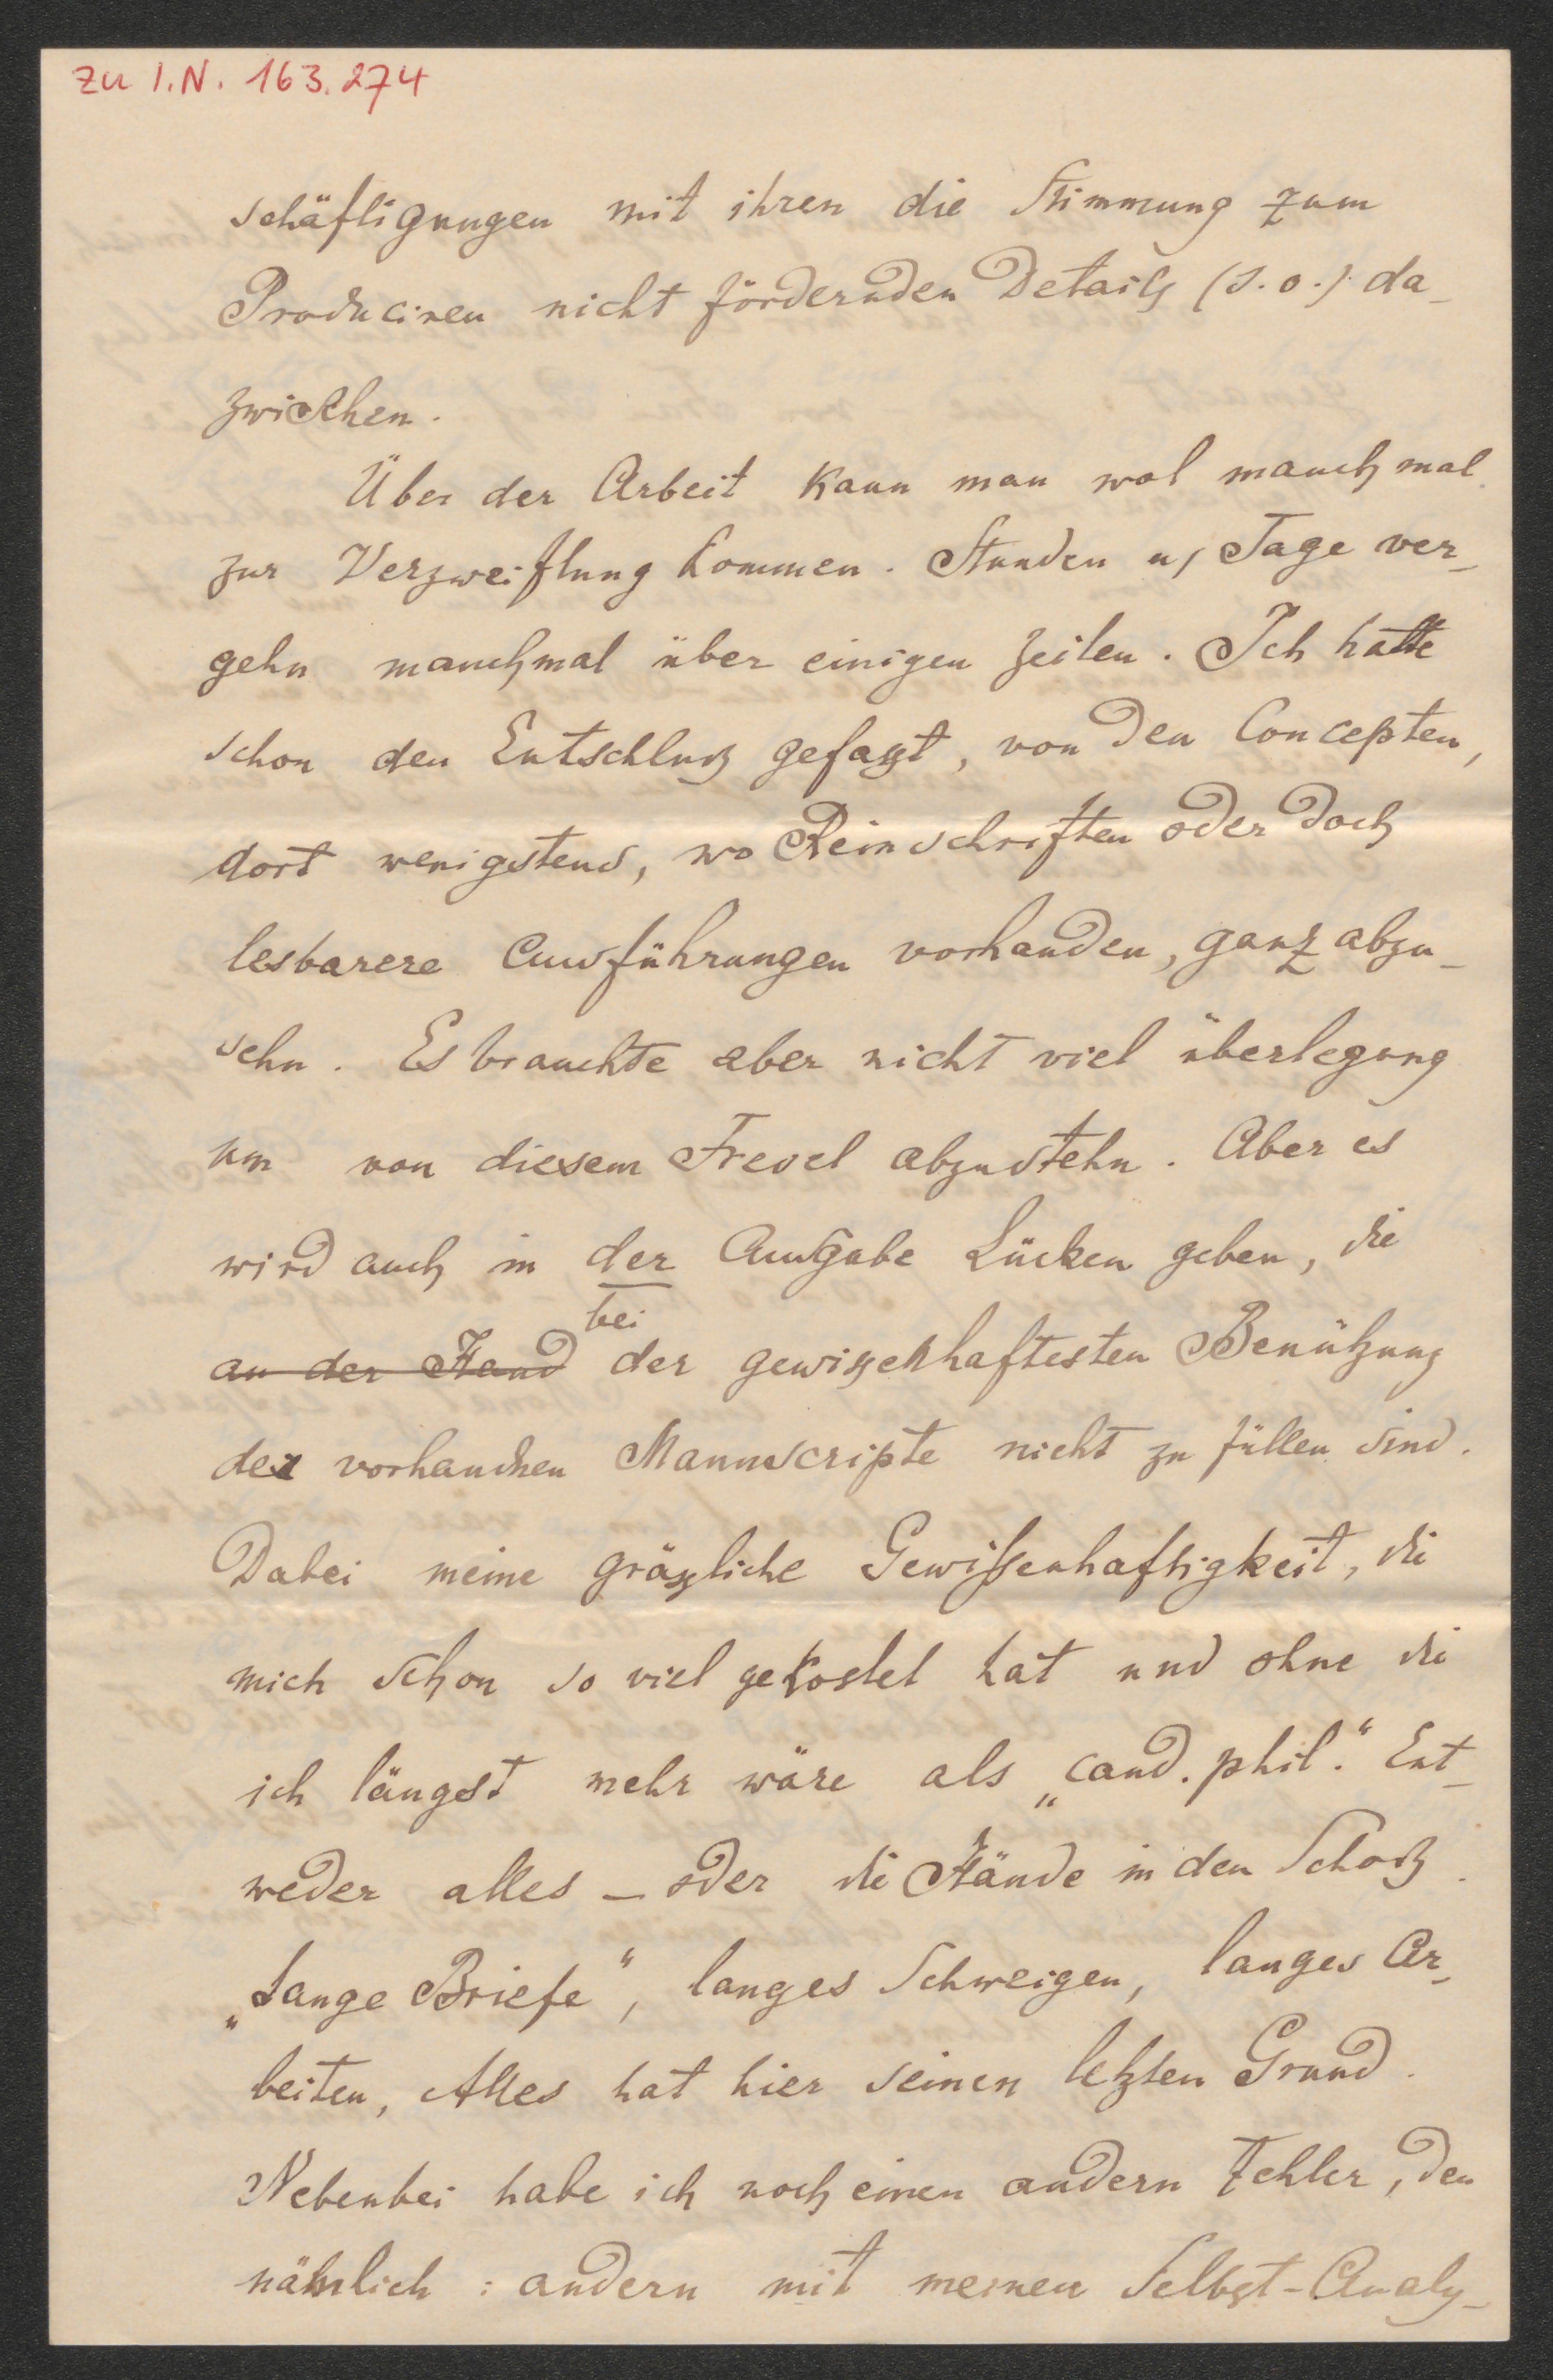 zu I.N. 163.274
schäftigungen mit ihren die Stimmung zum
Produciren nicht fördernden Details (s.o.) da-
zwischen.
Über der Arbeit kann man wol manchmal
zur Verzweiflung kommen. Stunden u, Tage ver-
gehn manchmal über einigen Zeilen. Ich hatte
schon den Entschluß gefaßt, von den Concepten,
dort wenigstens, wo Reinschriften oder doch
lesbarere Ausführungen vorhanden, ganz abzu-
sehn. Es brauchte aber nicht viel überlegung
um von diesem Frevel abzustehn. Aber es
wird auch in der Ausgabe Lücken geben, die
bei
an der Hand der gewißenhaftesten Benützung
der vorhandnen Manuscripte nicht zu füllen sind.
Dabei meine gräßliche Gewißenhaftigkeit, die
mich schon so viel gekostet hat und ohne die
ich längst mehr wäre als „cand. phil.“ Ent-
weder alles – oder die Hände in den Schoß.
„Lange Briefe“, langes Schweigen, langes Ar-
beiten, Alles hat hier seinen letzten Grund.
Nebenbei habe ich noch einen andern Fehler, den
nähmlich: andern mit meinen Selbst-Analy-